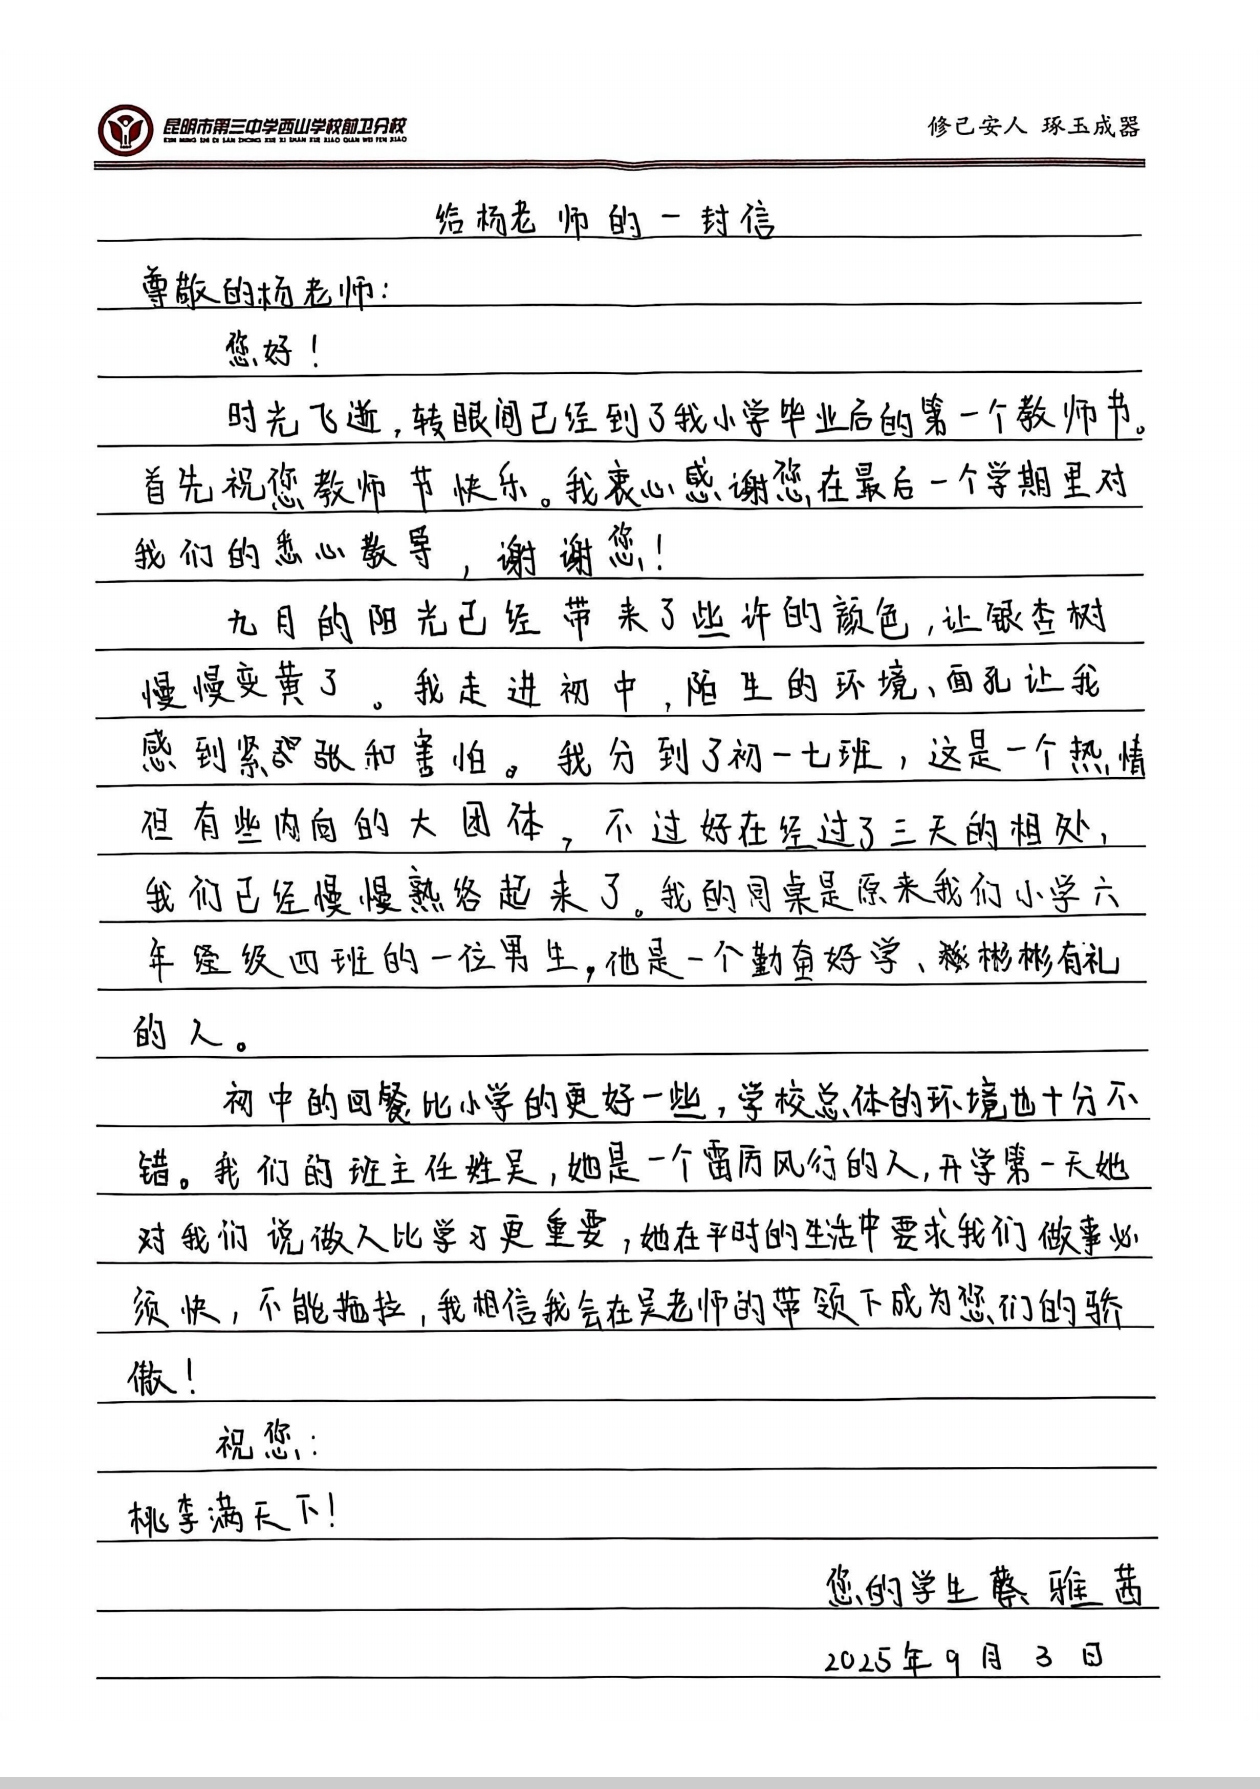 昆明市第三中学西山学校前卫分校
KUN MING SHI DI SAN ZHONG XUE XI SHAN XUE XIAO QIAN WEI FEN XIAO
修己安人 琢玉成器
给杨老师的一封信
尊敬的杨老师:
您好!
时光飞逝,转眼间已经到了我小学毕业后的第一个教师节。
首先祝您教师节快乐。我衷心感谢您在最后一个学期里对
我们的悉心教导,谢谢您!
九月的阳光已经带来了些许的颜色,让银杏树
慢慢变黄了。我走进初中,陌生的环境、面孔让我
感到紧张和害怕。我分到了初一七班,这是一个热情
但有些内向的大团体,不过好在经过了三天的相处,
我们已经慢慢熟络起来了。我的同桌是原来我们小学六
年级四班的一位男生,他是一个勤奋好学、彬彬有礼
的人。
初中的回餐比小学的更好一些,学校总体的环境也十分不
错。我们的班主任姓吴,她是一个雷厉风行的人,开学第一天她
对我们说做人比学习更重要,她在平时的生活中要求我们做事必
须快,不能拖拉,我相信我会在吴老师的带领下成为您们的骄
傲!
祝您:
桃李满天下!
您的学生蔡雅茜
2025年9月3日